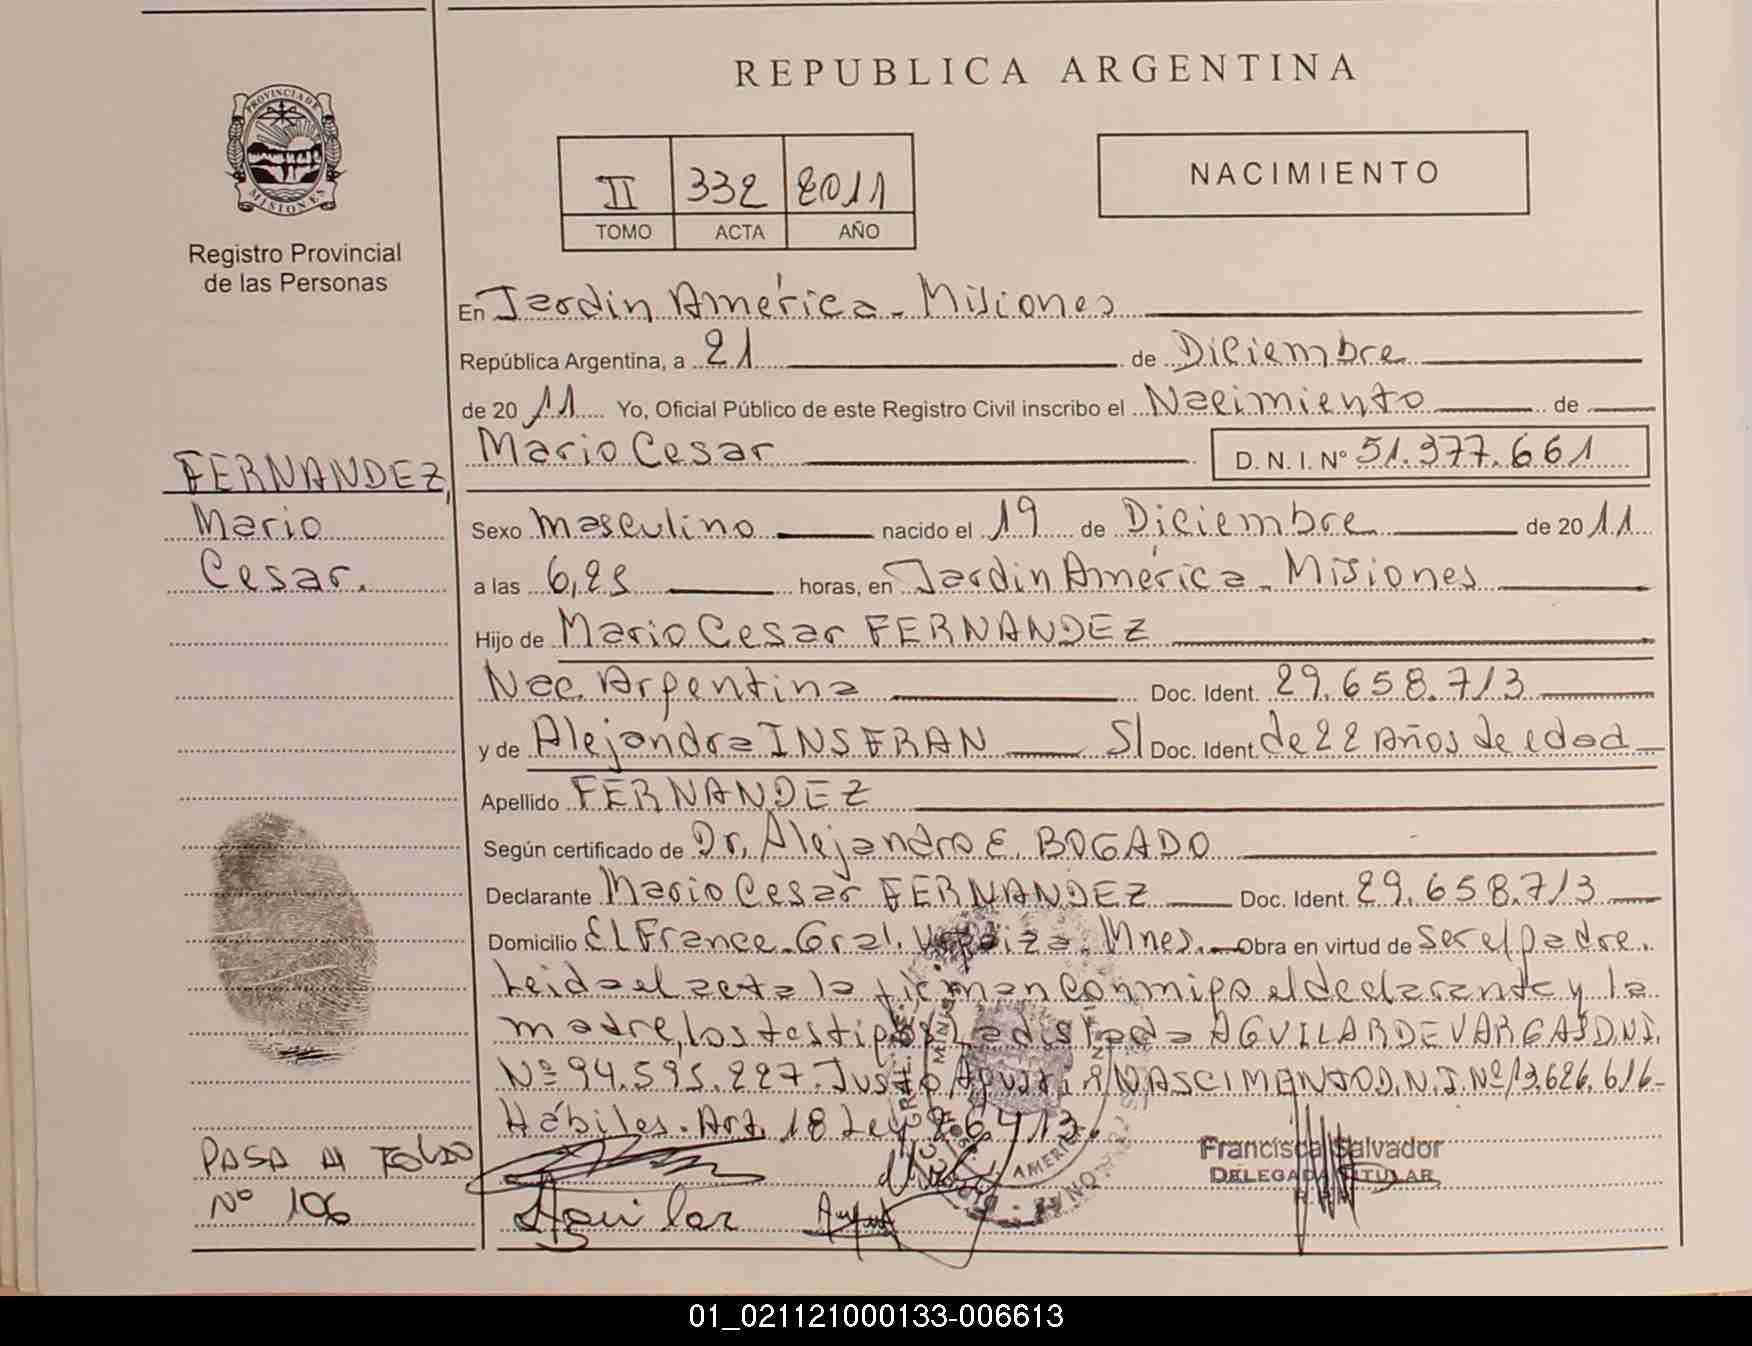 REPUBLICA ARGENTINA
PROVINCIA DE
MISIONES
Registro Provincial
de las Personas
II 332 2011
TOMO ACTA AÑO
NACIMIENTO
En Jardin América - Misiones
República Argentina, a 21 de Diciembre
de 20 11 Yo, Oficial Público de este Registro Civil inscribo el Nacimiento de
Mario Cesar D. N. I. Nº 51.377.661
FERNANDEZ,
Mario
Cesar.
Sexo masculino nacido el 19 de Diciembre de 20 11
a las 6,25 horas, en Jardin América - Misiones
Hijo de Mario Cesar FERNANDEZ
Nac. Argentina Doc. Ident. 29.658.713
y de Alejandra INSFRAN S/ Doc. Ident. de 22 Años de edad
Apellido FERNANDEZ
Según certificado de Dr. Alejandro E. BOGADO
Declarante Mario Cesar FERNANDEZ Doc. Ident. 29.658.713
Domicilio El France - Gral. Urquiza - Mnes. Obra en virtud de ser el padre.
Leida el acta la firman conmigo el declarante y la
madre, los testigos Ladislada AGUILAR DE VARGAS D.N.I.
Nº 94.595.227. Justo NASCIMENTO D.N.I. Nº 13.626.616-
Hábiles. Art. 18 Ley 26413.
PASA AL FOLIO
Nº 106
Aguilar
Francisca Salvador
DELEGADA TITULAR
AMERICA
01_021121000133-006613